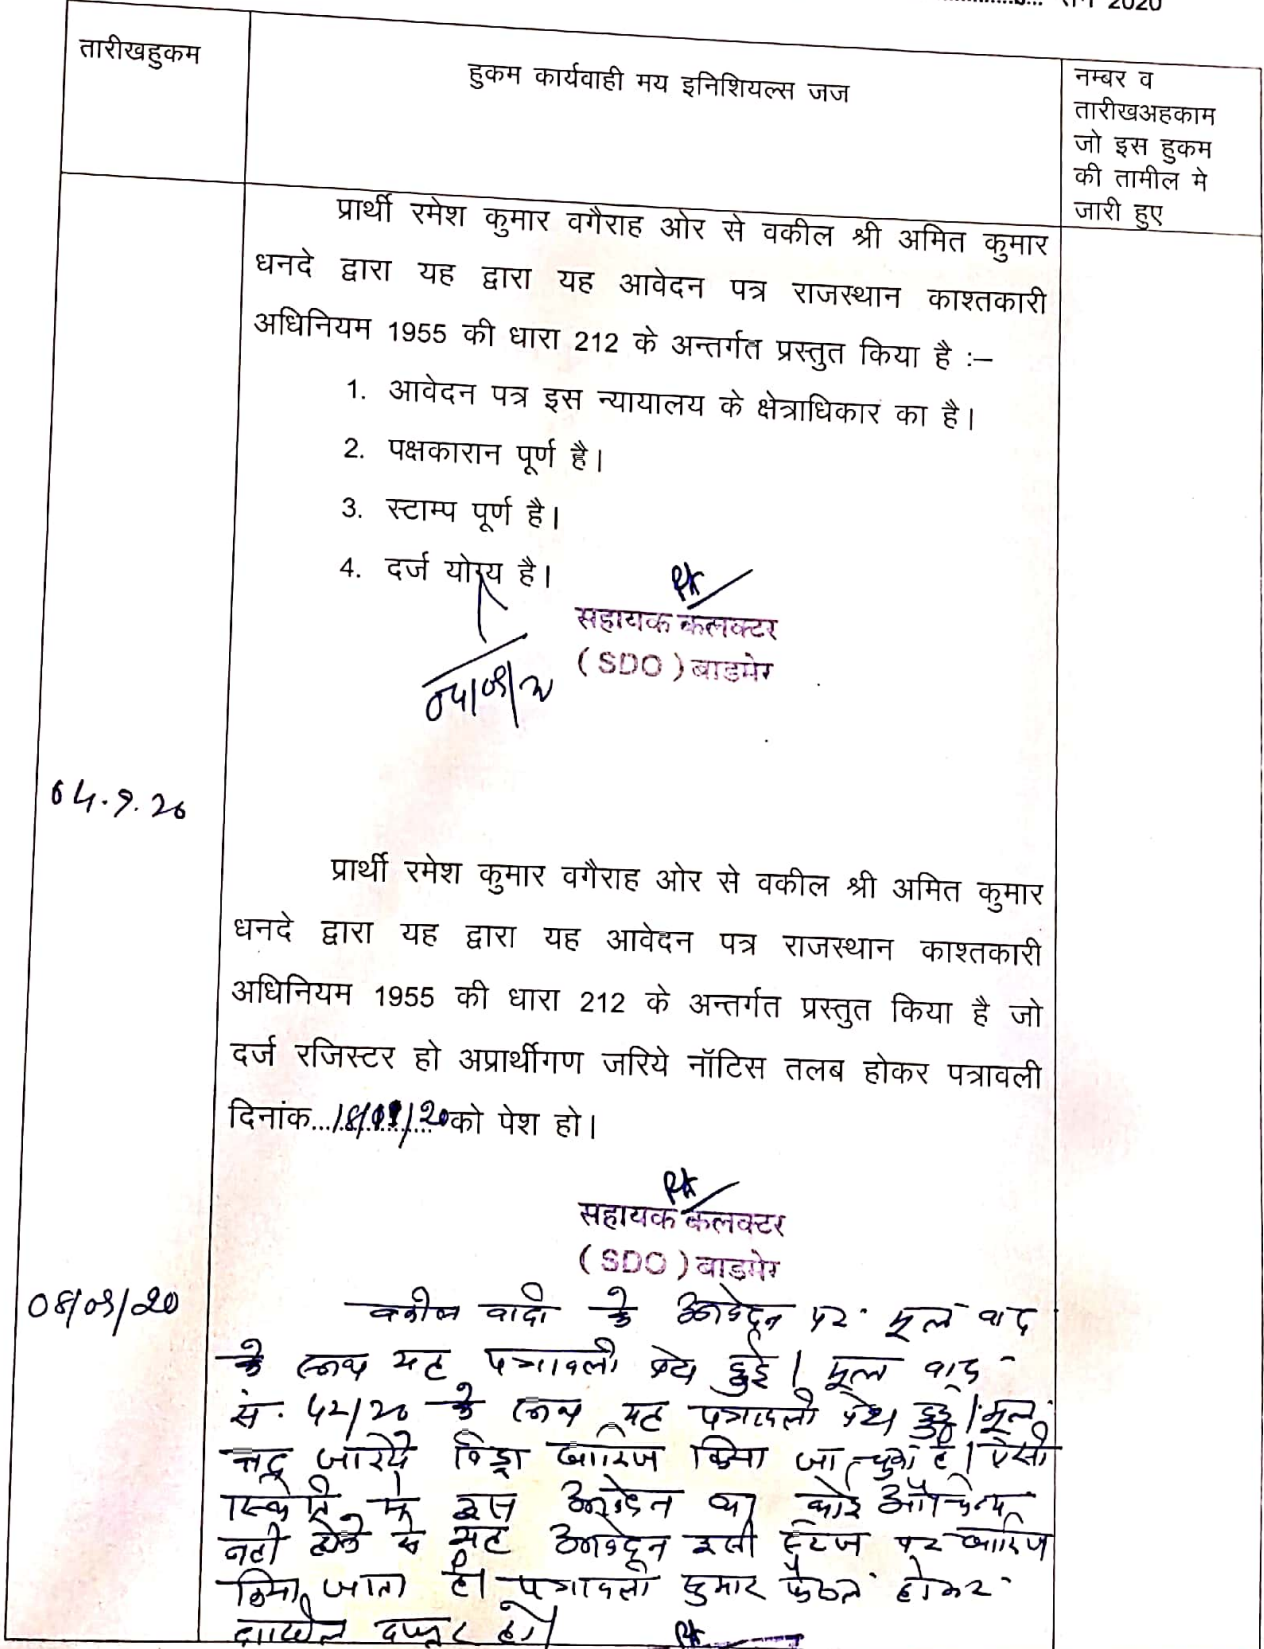 सन 2020
तारीखहुकम
हुकम कार्यवाही मय इनिशियल्स जज
नम्बर व
तारीखअहकाम
जो इस हुकम
की तामील मे
जारी हुए
प्रार्थी रमेश कुमार वगैराह ओर से वकील श्री अमित कुमार
धनदे द्वारा यह द्वारा यह आवेदन पत्र राजस्थान काश्तकारी
अधिनियम 1955 की धारा 212 के अन्तर्गत प्रस्तुत किया है :–
1. आवेदन पत्र इस न्यायालय के क्षेत्राधिकार का है।
2. पक्षकारान पूर्ण है।
3. स्टाम्प पूर्ण है।
4. दर्ज योग्य है।
सहायक कलक्टर
(SDO) बाडमेर
04.9.20
प्रार्थी रमेश कुमार वगैराह ओर से वकील श्री अमित कुमार
धनदे द्वारा यह द्वारा यह आवेदन पत्र राजस्थान काश्तकारी
अधिनियम 1955 की धारा 212 के अन्तर्गत प्रस्तुत किया है जो
दर्ज रजिस्टर हो अप्रार्थीगण जरिये नॉटिस तलब होकर पत्रावली
दिनांक...18/09/20 को पेश हो।
सहायक कलक्टर
(SDO) बाडमेर
08/09/20
वकील वादी के आवेदन पर मूल वाद
के साथ यह पत्रावली पेश हुई। मूल वाद
सं. 42/20 के साथ यह पत्रावली पेश हुई। मूल
जरिये विड्रा खारिज किया जा चुका है। ऐसी
स्थिति मे इस आवेदन का कोई औचित्य
नही होने से यह आवेदन इसी स्टेज पर खारिज
किया जाता है। पत्रावली शुमार फैसल होकर
दाखिल दफ्तर हो।